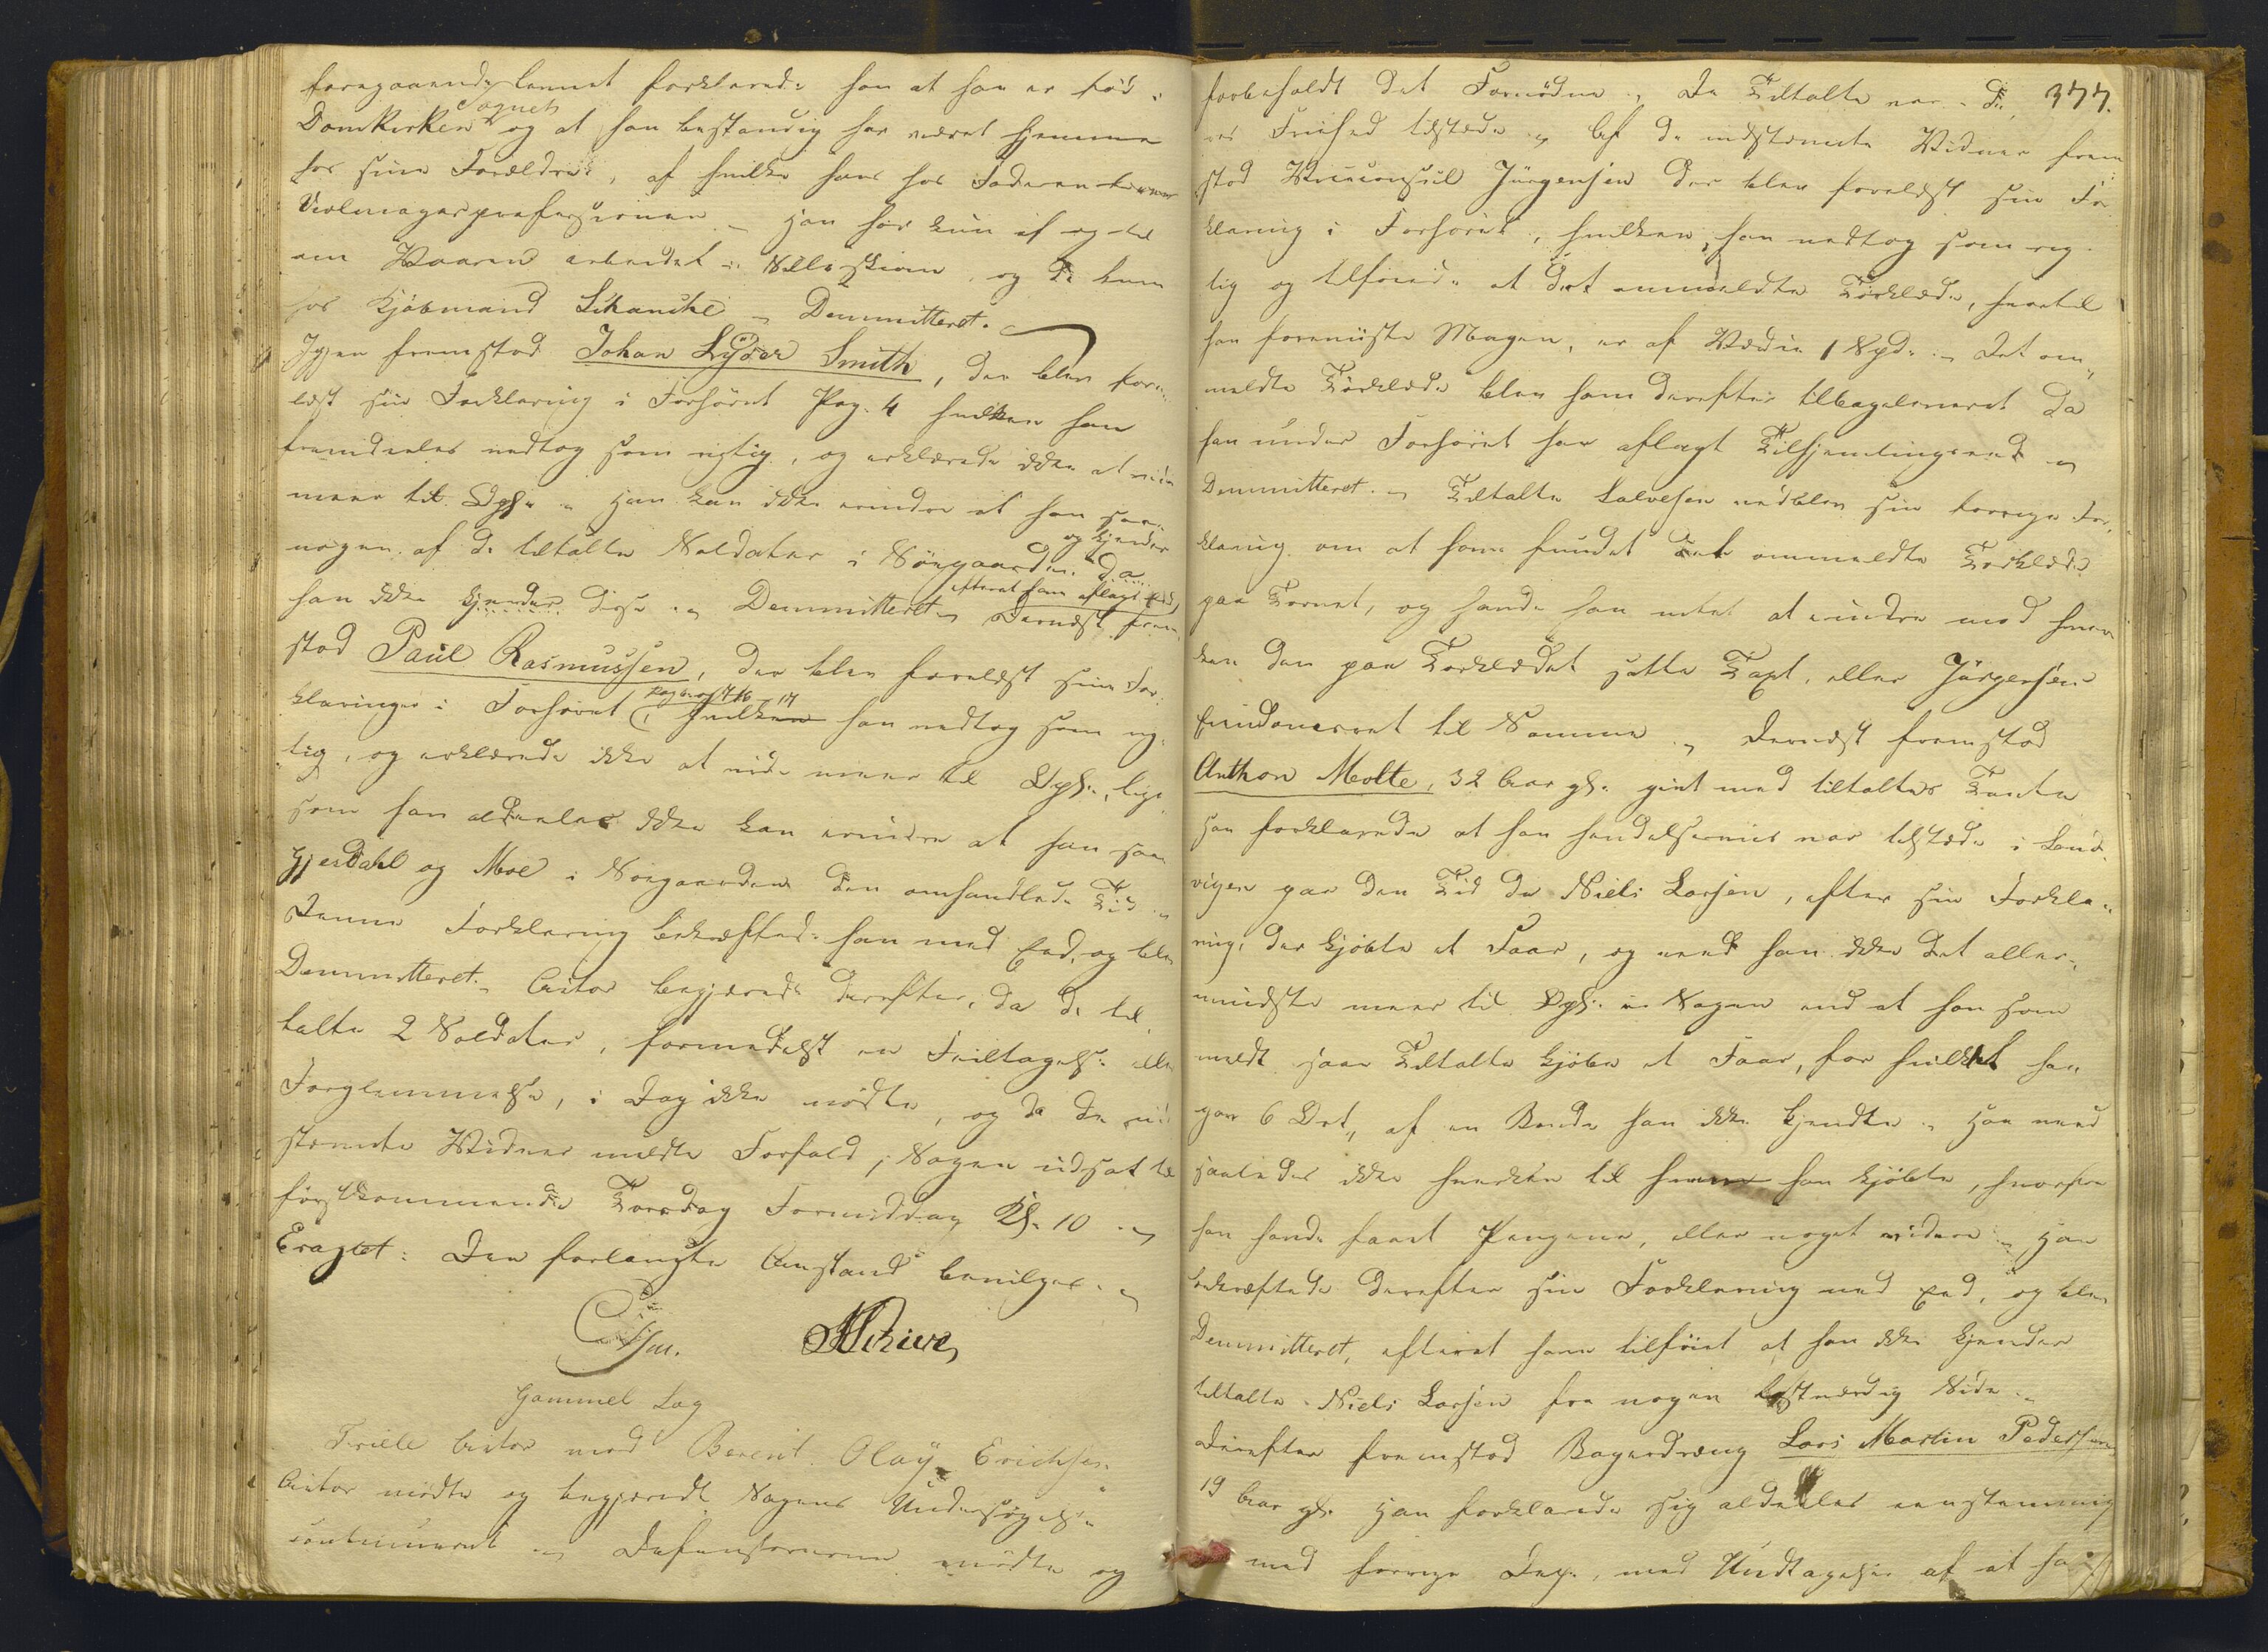 foregaaende. Leenent forklarede han at han er fød i
Domkirken Sognet og at han bestandig har været hjemme
hos sine Forældre, af hvilke han hos Faderen lærer
Uhrmagerprofessionen han har kun af og til
om Vaaren arbeidet i og da kun
hos Kjøbmand Schanche Demmitteret.
Igjen fremstod Johan Lyder Smith, der blev fore-
læst sin Forklaring i Forhøret Pag. 4 hvilken han
fremdeles vedtog som rigtig, og erklærede ikke at vide
mere til Oplysn. Han kan ikke erindre at han saae
nogen af de tiltalte Soldater i Nöegaarden da og kjender
han ikke kjender disse. Demmitteret. Dernæst efterat have aflagt Eed, frem-
stod Paul Rasmussen, der blev forelæst sine For-
klaringer i Forhøret Pag 6 og 7 16-17 hvilken han vedtog som rig-
tig, og erklærede ikke at vide mere til Oplysn., lige-
som han aldeeles ikke kan erindre at han saae
Gjesdahl og Moe i Nöegaarden den omhandlede Tid
Denne Forklaring bekræftede han med Eed, og blev
Demmitteret. Actor begjærede derefter, da de til-
talte 2 Soldater, formedelst en Feiltagelse eller
Forglemmelse, i Dag ikke mödte, og da de ind-
stevnte Vidner meldte Forfald, Sagen udsat til
førstkommende Torsdag Formiddag Kl. 10
Eragtet: Den forlangte Anstand bevilges.
Gammel Sag
Friele Actor mod Berent Olaÿ Erichsen
Actor mödte og begjærede Sagens Undersøgelse
continueret Defensorerne mødte og
377.
forbeholdt det Fornødne. De Tiltalte var i Fri-
ved Friehed tilstede og af de indstevnte Vidner frem-
stod Viceconsul Jürgensen der blev forelæst sin For-
klaring i Forhøret, hvilken han vedtog som rig-
tig og tilföiede at det ommeldte Tørklæde, hvortil
han foreviiste Magen, er af Værdie 1 Spd. Det om-
meldte Tørklæde blev ham derefter tilbageleveret da
han under Forhøret har aflagt Tilhjemlingseed
Demmitteret. Tiltalte Salvesen vedblev sin forrige For-
klaring om at have fundet det ommeldte Tørklæde
paa Torvet, og havde han intet at erindre mod hver-
ken den paa Tørklædet satte Taxt, eller Jürgensens
Eiendomsret til Samme. Dernæst fremstod
Anthon Meolte, 32 Aar gl. givt med tiltaltes Tante
han forklarede at han hændelsesviis var tilstede i Sand-
vigen paa den Tid da Niels Larsen, efter sin Forkla-
ring, der kjøbte et Faar, og veed han ikke det aller-
mindste meer til Oplysn. i Sagen end at han som
meldt saae Tiltalte kjøbe et Faar, for hvilket han
gav 6 Ort, af en Bonde han ikke kjendte. Han veed
saaledes ikke hverken til hvem han kjøbte, hvorfra
han havde faaet Pengene, eller noget videre. Han
bekræftede derefter sin Forklaring med Eed, og blev
Demmitteret, efterat have tilföiet at han ikke kjender
tiltalte Niels Larsen fra nogen lastværdig Side.
Derefter fremstod Bagerdreng Lars Martin Pedersen
19 Aar gl. Han forklarede sig aldeeles eenstemmig
med forrige Dep., med Undtagelse af at ha